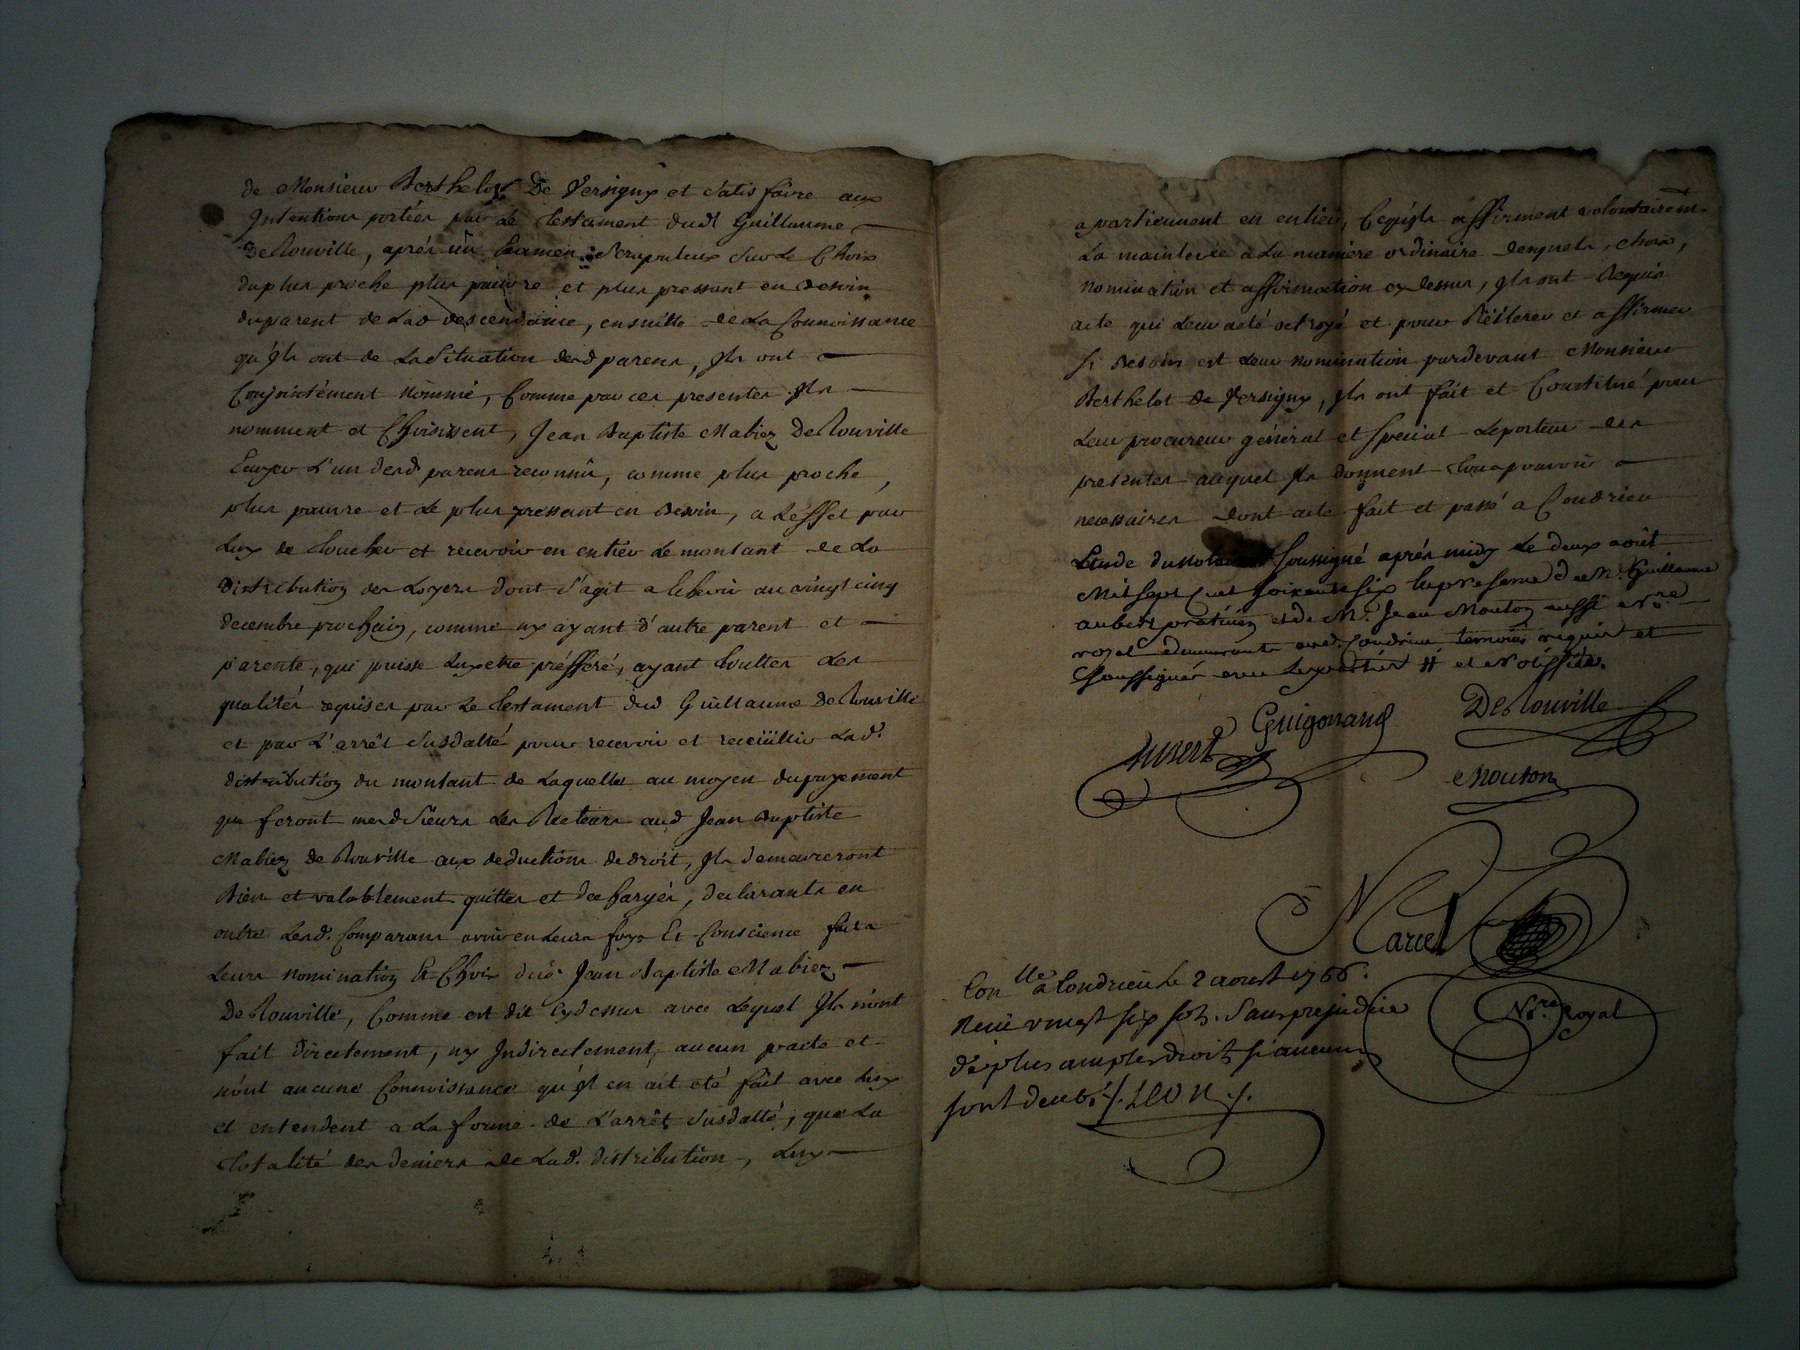 de Monsieur Berthelot De Versigny et satisfaire aux
Intentions portées par le testament dudt Guillaume
De Rouville, aprés un Examen scrupuleux sur le Choix
du plus proche plus pauvre et plus pressant en Besoin
du parent de lad descendance, ensuitte de la Connoissance
qu'jls ont de la situation desd parens, jls ont
Conjointément nommé, Comme par ces presentes jls
nomment et Choisissent, Jean Baptiste Mabiez De Rouville
Ecuyer l'un desd parens reconnû, comme plus proche,
plus pauvre et le plus pressent en Besoin, a l'effet par
luy de toucher et recevoir en entier le montant de la
distribution des loyers dont s'agit a echeoir au vingt cinq
decembre prochain, comme ny ayant d'autre parent et
parente, qui puisse luy etre préfféré, ayant touttes les
qualités requises par le testament dud Guillaume De Rouville
et par l'arrêt susdatté pour recevoir et receüillir lad.
distribution du montant de laquelle au moyen du payement
que feront mesd sieurs les Recteurs aud Jean Baptiste
Mabiez de Rouville aux deductions de droit, jls demeureront
Bien et valablement quittes et decharges, declarants en
outre lesd. Comparans avoir en leurs foys Et Conscience fait
leurs nomination Et Choix dud. Jean Baptiste Mabiez
De Rouville, Comme est dit cy dessus avec lequel jls n'ont
fait directement, ny Indirectement, aucun pacte et
n'ont aucune Connoissance qu'jl en ait eté fait avec luy
et entendent a la forme de l'arrêt susdatté, que la
totalité des deniers de lad. distribution, luy
apartiennent en entier, Ce qu'jls affirment volontairemt.
la mainlevée a la maniere ordinaire desquels choix,
nomination et affirmation cy dessus, jls ont Requis
acte qui leur a eté octroyé et pour Réiterer et affirmer
si Besoin est leur nomination pardevant Monsieur
Berthelot De Versigny, jls ont fait et Constitué pour
leur procureur général et spécial le porteur des
presentes auquel jls donnent tous pouvoir
necessaires dont acte fait et passé a Condrieu
Etude du notaire soussigné aprés midy le deux août
Mil sept Cent soixante six En presence de Mr. Guillaume
Aubert praticien et de Mr. Jean Mouton aussi Nre
royal demeurants aud. Condrieu temoins requis et
soussignés avec les parties
Guigonand
De Rouville
Aubert
Mouton
Marcel
Nre. Royal
Con lle a Condrieu le 2 aoust 1766.
Reçu vingt six sols. Sans prejudice
de plus amples droits si aucuns
sont deubs /. LEON /.